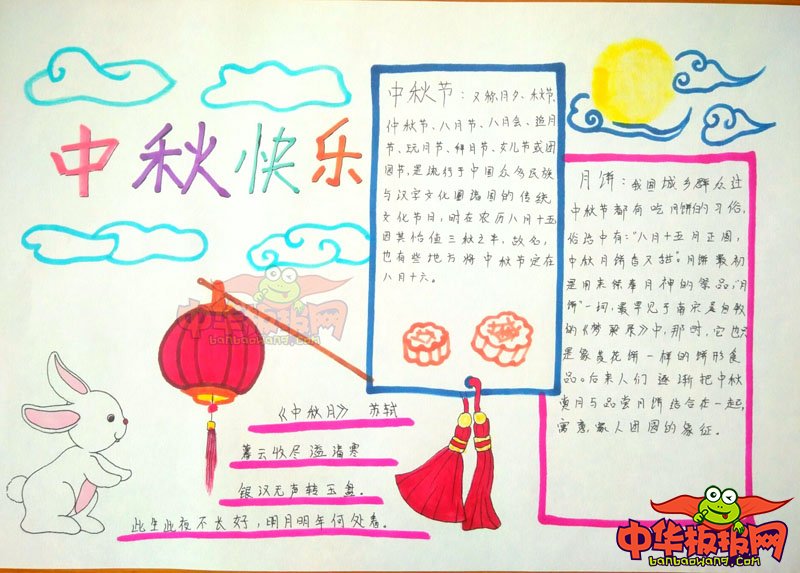 中秋快乐
中秋节：又称月夕、秋节、
仲秋节、八月节、八月会、追月
节、玩月节、拜月节、女儿节或团
圆节，是流行于中国众多民族
与汉字文化圈诸国的传统
文化节日，时在农历八月十五
因其恰值三秋之半，故名，
也有些地方将中秋节定在
八月十六。
月饼：我国城乡群众过
中秋节都有吃月饼的习俗，
俗话中有："八月十五月正圆，
中秋月饼香又甜"。月饼最初
是用来供奉月神的祭品，"月
饼"一词，最早见于南宋吴自牧
的《梦粱录》中，那时，它也只
是象菱花饼一样的饼形食
品。后来人们逐渐把中秋
赏月与品尝月饼结合在一起，
寓意家人团圆的象征。
《中秋月》 苏轼
暮云收尽溢清寒
银汉无声转玉盘。
此生此夜不长好，明月明年何处看。
中华板报网
banbaowang.com
中华板报网
banbaowang.com